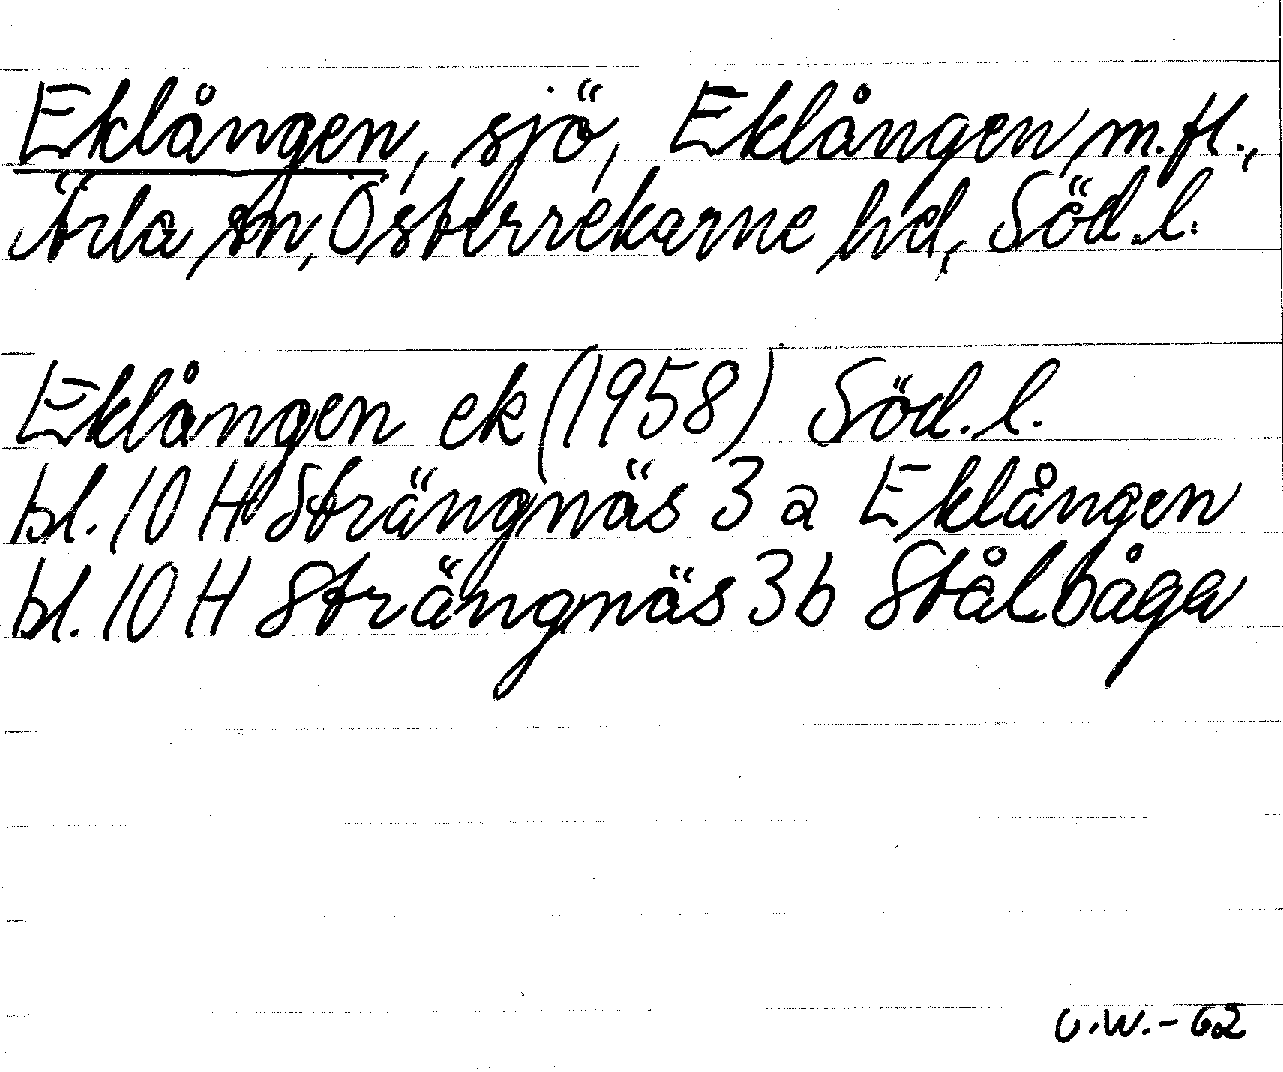 Eklången, sjö, Eklången m.fl.,
Ärla sn, Österrekarne hd, Söd.l.
Eklången ek (1958) Söd.l.
bl. 10 H Strängnäs 3 a Eklången
bl. 10 H Strängnäs 3 b Stålbåga
O.W.-62